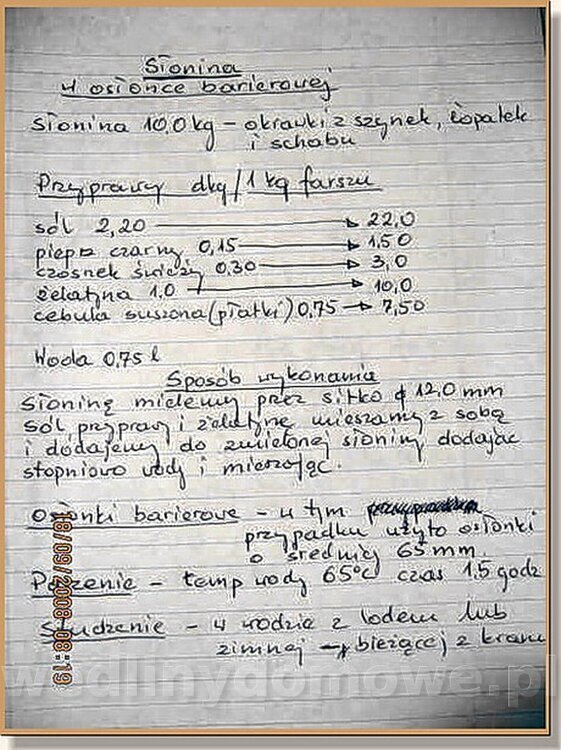 Słonina
w osłonce barierowej
Słonina 10,0 kg – okrawki z szynek, łopatek
i schabu
Przyprawy dkg/1 kg farszu
sól 2,20 → 22,0
pieprz czarny 0,15 → 1,50
czosnek świeży 0,30 → 3,0
żelatyna 1,0 → 10,0
cebula suszona (płatki) 0,75 → 7,50
Woda 0,75 l
Sposób wykonania
Słoninę mielemy przez sitko ϕ 12,0 mm
sól przyprawy i żelatynę mieszamy z sobą
i dodajemy do zmielonej słoniny dodając
stopniowo wody i mieszając.
Osłonki barierowe – w tym
przypadku użyto osłonki
o średnicy 65 mm.
Parzenie – temp wody 65°C czas 1,5 godz
Studzenie – w wodzie z lodem lub
zimnej → bieżącej z kranu
18/09/2008 08:19
wedlinydomowe.pl